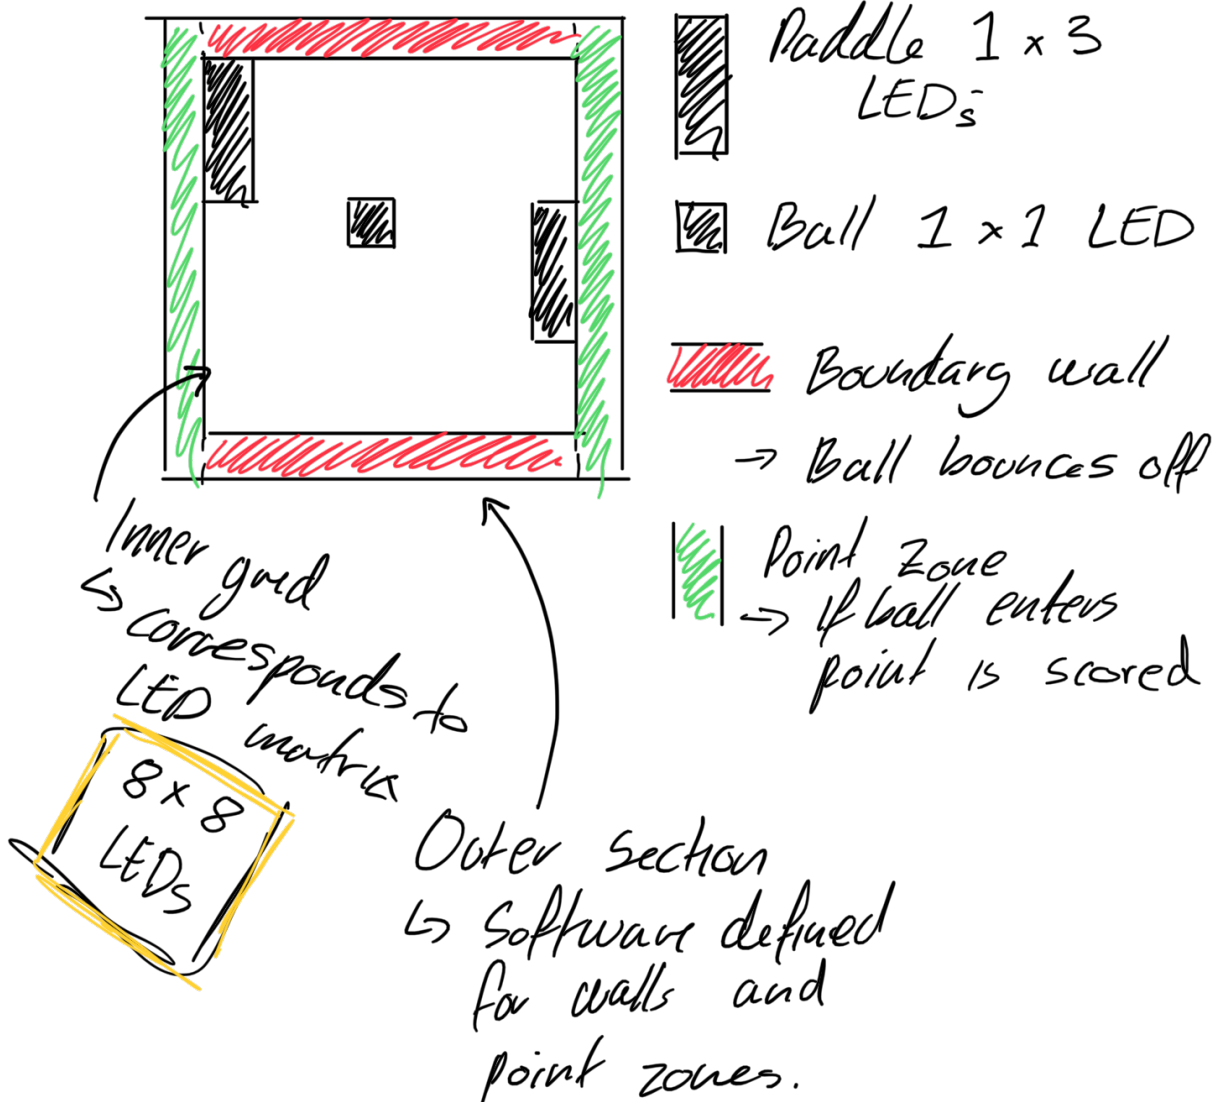 Paddle 1 x 3
LEDs
Ball 1 x 1 LED
Boundary wall
→ Ball bounces off
Point Zone
→ If ball enters
point is scored
Inner grid
↳ corresponds to
LED matrix
8 x 8
LEDs
Outer section
↳ Software defined
for walls and
point zones.